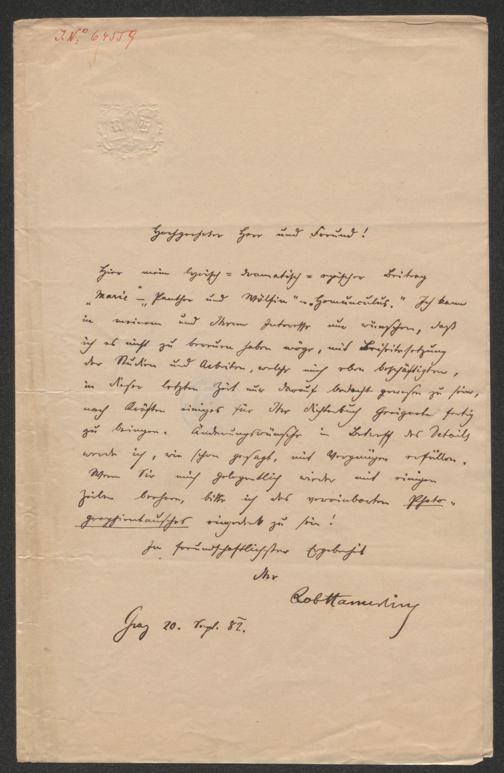 J.N.º 64559
Hochgeehrter Herr und Freund!
Hier mein lyrisch=dramatisch=epischer Beitrag
„Marie“ – „Panther und Wölfin“ u. „Homunculus.“ Ich kann
in meinem und Ihrem Interesse nur wünschen, daß
ich es nicht zu bereuen haben möge, mit Beiseitesetzung
der Studien und Arbeiten, welche mich eben beschäftigten,
in dieser letzten Zeit nur darauf bedacht gewesen zu sein,
nach Kräften einiges für Ihr Dichterbuch Geeignete fertig
zu bringen. Änderungswünsche in Betreff des Details
werde ich, wie schon gesagt, mit Vergnügen erfüllen.
Wenn Sie mich gelegentlich wieder mit einigen
Zeilen beehren, bitte ich des vereinbarten Photo-
graphientausches eingedenk zu sein!
In freundschaftlichster Ergebenheit
Ihr
Rob Hamerling
Graz 20. Sept. 82.